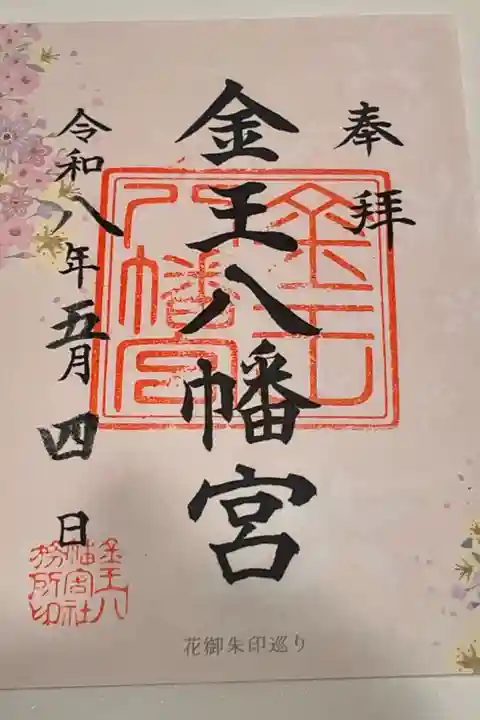 奉拝
金王八幡宮
令和八年五月四日
金王八幡宮
金王八
幡宮社
務所印
花御朱印巡り